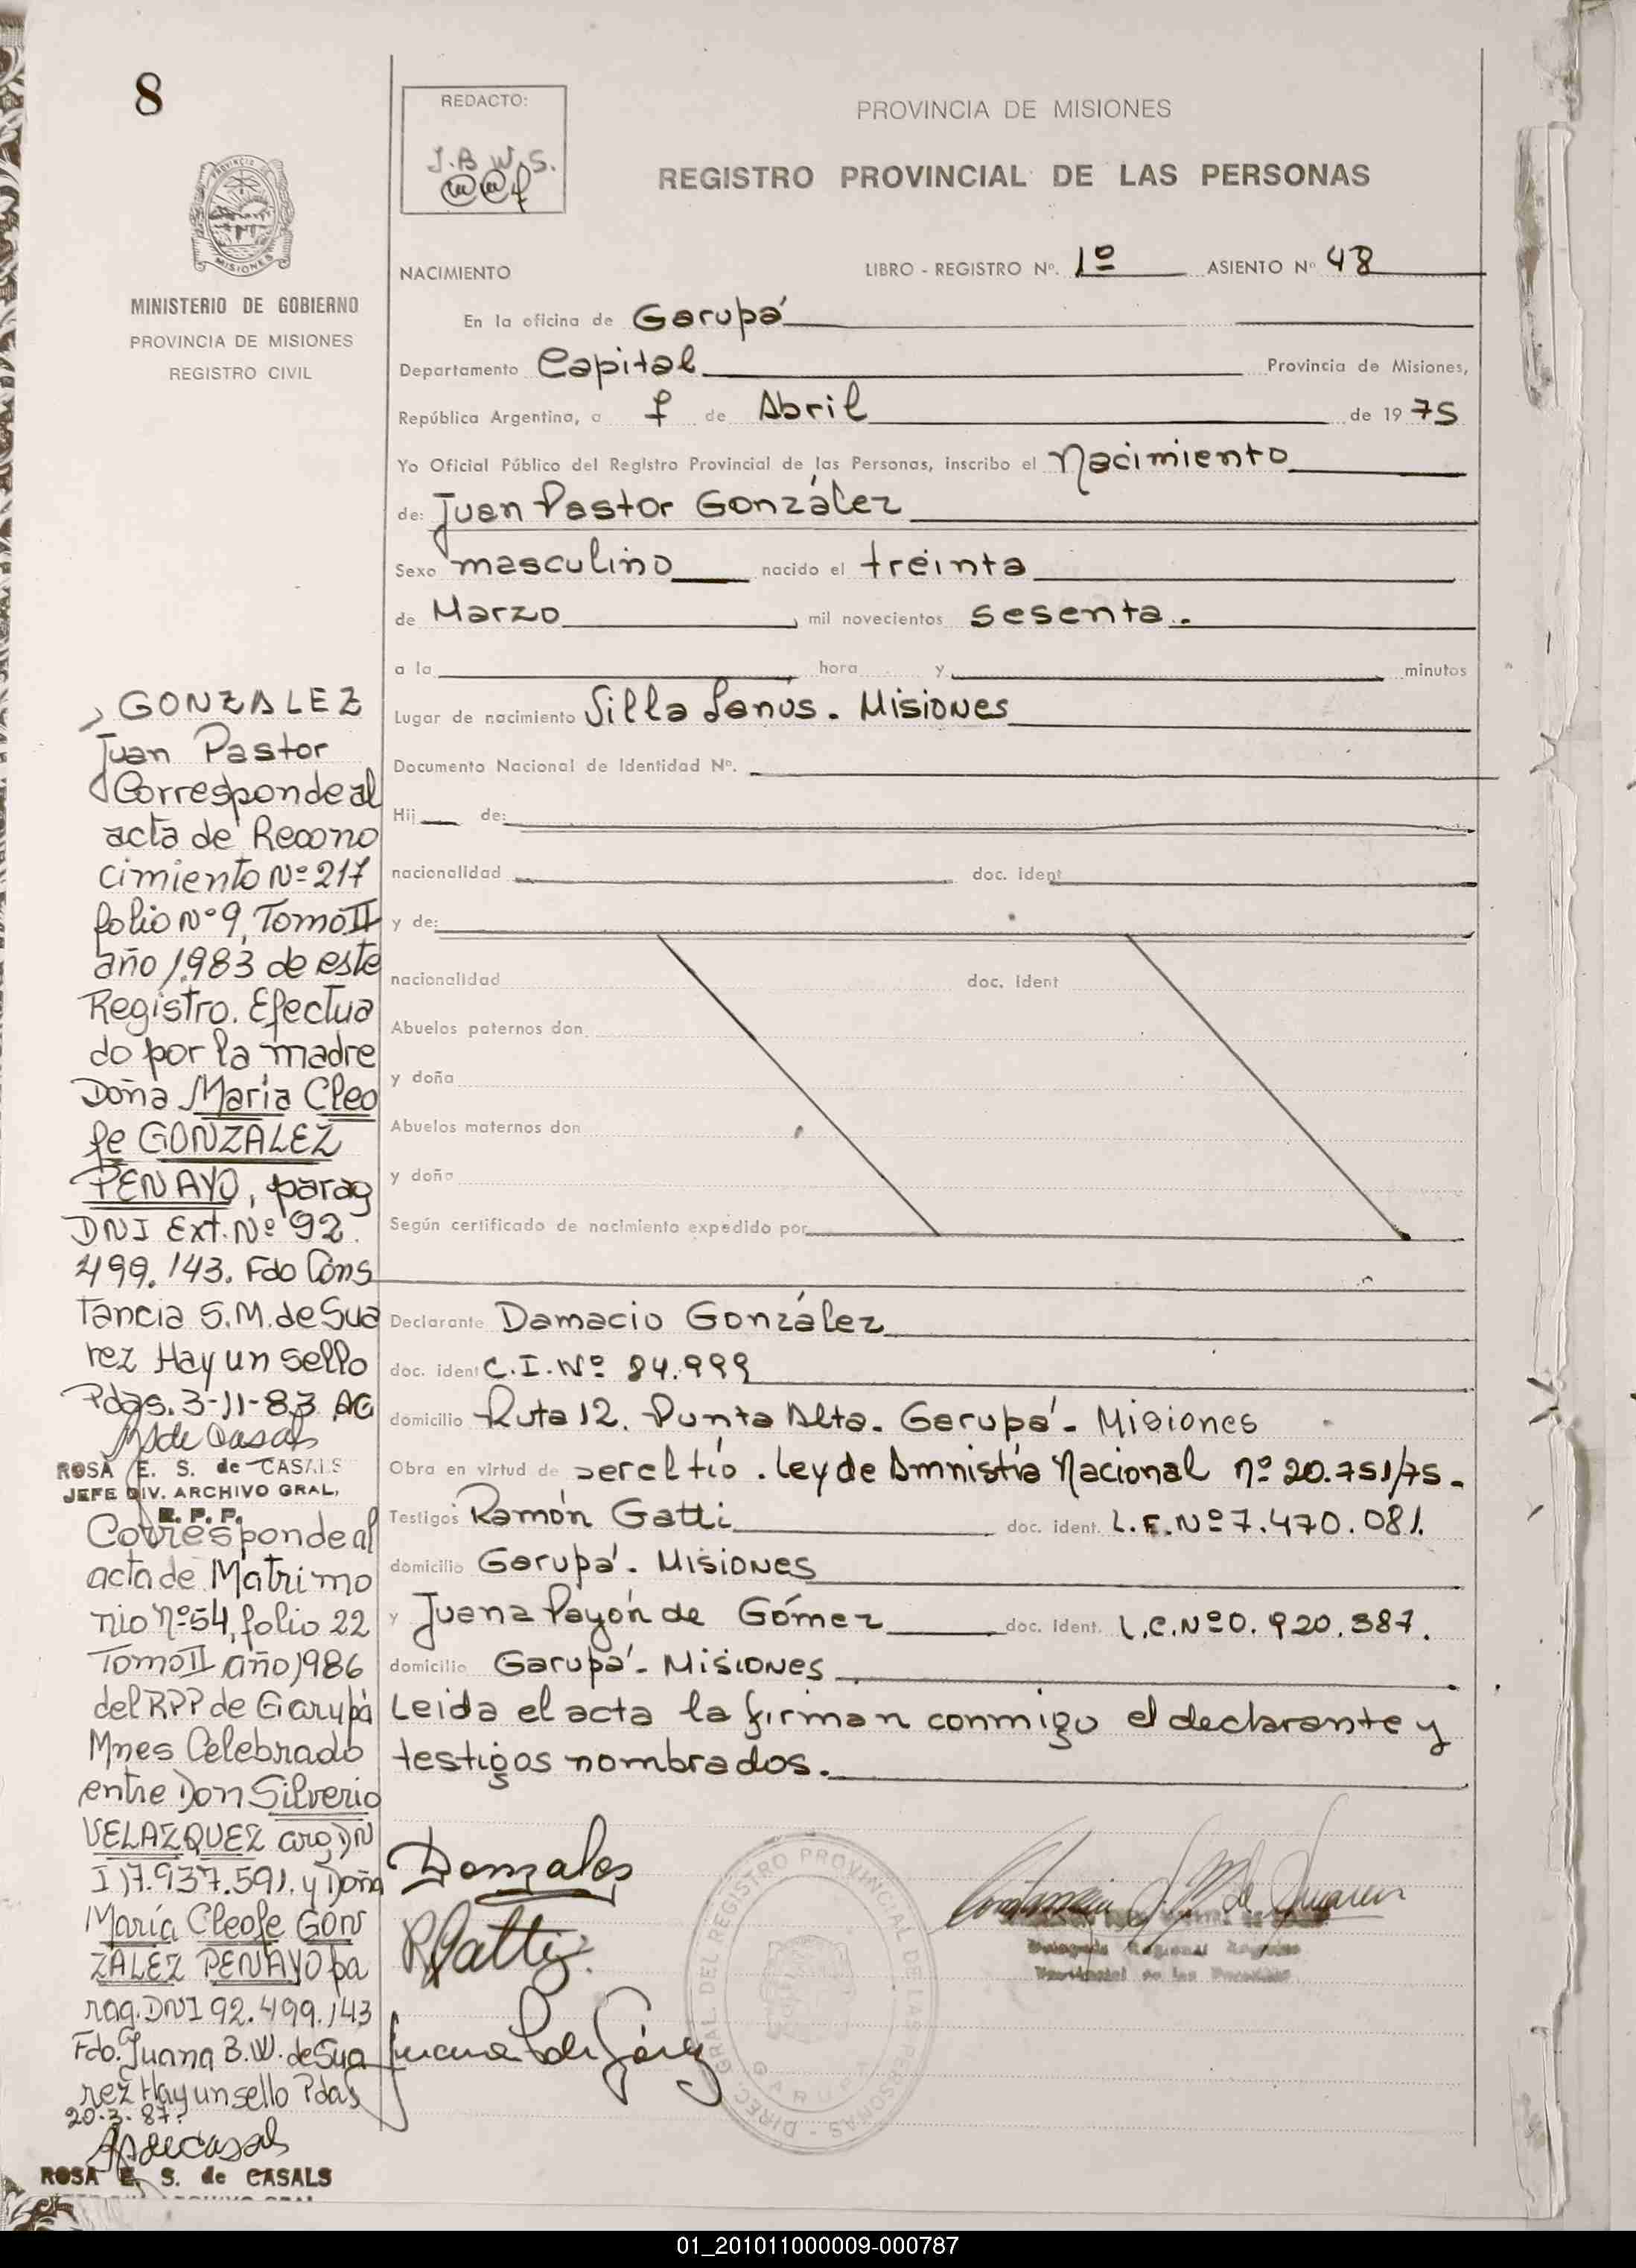 8
REDACTO:
J.B.W.S.
PROVINCIA DE MISIONES
REGISTRO PROVINCIAL DE LAS PERSONAS
PROVINCIA
MISIONES
MINISTERIO DE GOBIERNO
PROVINCIA DE MISIONES
REGISTRO CIVIL
NACIMIENTO LIBRO - REGISTRO Nº. 1º ASIENTO Nº 48
En la oficina de Garupá
Departamento Capital Provincia de Misiones,
República Argentina, a 7 de Abril de 1975
Yo Oficial Público del Registro Provincial de las Personas, inscribo el Nacimiento
de: Juan Pastor González
Sexo masculino nacido el treinta
de Marzo, mil novecientos sesenta.
a la hora y minutos
Lugar de nacimiento Villa Lanús. Misiones
Documento Nacional de Identidad Nº.
Hij de:
nacionalidad doc. ident
y de:
nacionalidad doc. ident
Abuelos paternos don
y doña
Abuelos maternos don
y doña
Según certificado de nacimiento expedido por
Declarante Damacio González
doc. ident C.I.Nº 84.999
domicilio Ruta 12. Punta Alta. Garupá - Misiones
Obra en virtud de ser el tío. Ley de Amnistía Nacional nº 20.751/75.
Testigos Ramón Gatti doc. ident. L.E.Nº 7.470.081.
domicilio Garupá. Misiones
y Juana Payón de Gómez doc. ident. L.C.Nº 0.920.387.
domicilio Garupá - Misiones
Leida el acta la firman conmigo el declarante y
testigos nombrados.
GONZALEZ
Juan Pastor
Corresponde al
acta de Recono
cimiento Nº 217
folio Nº 9, Tomo II
año 1.983 de este
Registro. Efectua
do por la madre
Doña María Cleo
fe GONZALEZ
PENAYO, parag
DNI Ext. Nº 92.
499.143. Fdo Cons
tancia S.M. de Sua
rez Hay un sello
Pdas. 3-11-83 AG
ROSA E. S. de CASALS
JEFE DIV. ARCHIVO GRAL.
R. P. P.
Corresponde al
acta de Matrimo
nio nº 54, folio 22
Tomo II año 1986
del RPP de Garupá
Mnes Celebrado
entre Don Silverio
VELAZQUEZ arg, DN
I 17.937.591. y Doña
María Cleofe GON
ZALEZ PENAYO pa
rag. DNI 92.499.143
Fdo. Juana B.W. de Sua
rez Hay un sello Pdas
20.3.87.
ROSA E. S. de CASALS
Gonzales
RGatti
DIREC. GRAL. DEL REGISTRO PROVINCIAL DE LAS PERSONAS -
GARUPA
Constancia S. M. de Suarez
01_201011000009-000787